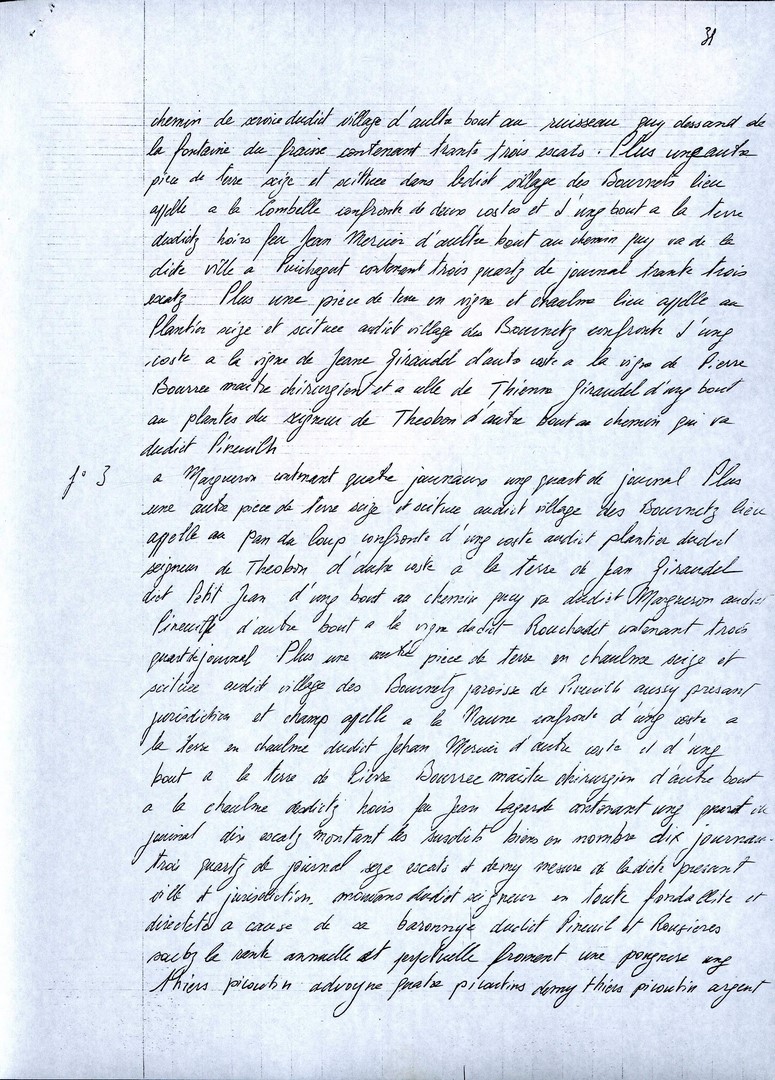 31
chemin de service dudict village d'aultre bout au ruisseau quy dessand de
la fontaine du fraisse contenant trante trois escats. Plus ung autre
piece de terre size et scittuee dans ledict village des Bournets lieu
appelle a la Combelle confronte de deux costes et d'ung bout a la terre
desdictz hoirs feu Jean Mercier d'aultre bout au chemin quy va de la
dicte ville a Puichagut contenant trois quartz de journal trante trois
escatz Plus une piece de terre en vigne et chaulme lieu appelle au
Plantier size et scittuee audict village des Bournetz confronte d'ung
coste a la vigne de Jeane Giraudel d'autre coste a la vigne de Pierre
Bourree maitre chirurgien et a celle de Thienne Giraudel d'ung bout
au plantes du seigneur de Theobon d'autre bout au chemin qui va
dudict Pineuilh
f° 3 a Margueron contenant quatre journaux ung quart de journal Plus
une autre piece de terre size et scituee audict village des Bournetz lieu
appelle au Pan du Loup confronte d'ung coste audict plantier dudict
seigneur de Theobon d'autre coste a la terre de Jean Giraudel
dict Petit Jean d'ung bout au chemin quy va dudict Margueron audict
Pineuilh d'autre bout a la vigne dudict Rouchadet contenant trois
quart de journal Plus une autre piece de terre en chaulme size et
scituee audict village des Bournetz paroisse de Pineuilh aussy presant
jurisdiction et champ appelle a la Naune confronte d'ung coste a
la terre en chaulme dudict Jehan Mercier d'autre coste et d'ung
bout a la terre de Pierre Bourree maitre chirurgien d'autre bout
a la chaulme desdictz hoirs feu Jean Lagarde contenant ung quart de
journal dix escatz montant les susdicts biens en nombre dix journau-
trois quartz de journal seze escats et demy mesure de la dicte presant
ville et jurisdiction, mouvans dudict seigneur en toute fondallite et
directete a cause de sa baronnye dudict Pineuil et Rouzieres
soubz la rente annuelle et perpetuelle froment une pongnere ung
thiers picoutin advoyne quatre picoutins demy thiers picoutin argent